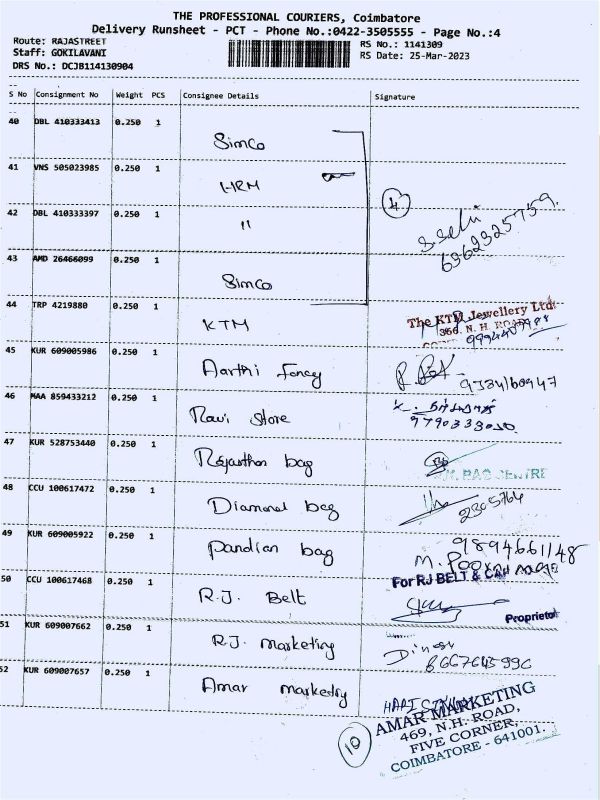 THE PROFESSIONAL COURIERS, Coimbatore
Delivery Runsheet - PCT - Phone No.:0422-3505555 - Page No.:4
Route: RAJASTREET
Staff: GOKILAVANI
DRS No.: DCJB114130904
RS No.: 1141309
RS Date: 25-Mar-2023
S No Consignment No Weight PCS Consignee Details Signature
40 DBL 410333413 0.250 1 Simco
41 VNS 505023985 0.250 1 HRM
42 DBL 410333397 0.250 1 11
4
S. Selvi
6362325759.
43 AMD 26466099 0.250 1 Simco
44 TRP 4219880 0.250 1 KTM
The KTM Jewellery Ltd
366, N. H. ROAD
45 KUR 609005986 0.250 1 Aarthi fancy
46 MAA 859433212 0.250 1 Ravi Store
9790333030
47 KUR 528753440 0.250 1 Rajasthan bag
BAG CENTRE
48 CCU 100617472 0.250 1 Diamond bag
2305764
49 KUR 609005922 0.250 1 Pandian bag
9894661148
50 CCU 100617468 0.250 1 R.J. Belt
For RJ BELT & CAP
Proprietor
51 KUR 609007662 0.250 1 RJ. marketing
8667645996
52 KUR 609007657 0.250 1 Amar marketing
10
AMAR MARKETING
469, N.H. ROAD,
FIVE CORNER,
COIMBATORE - 641001.